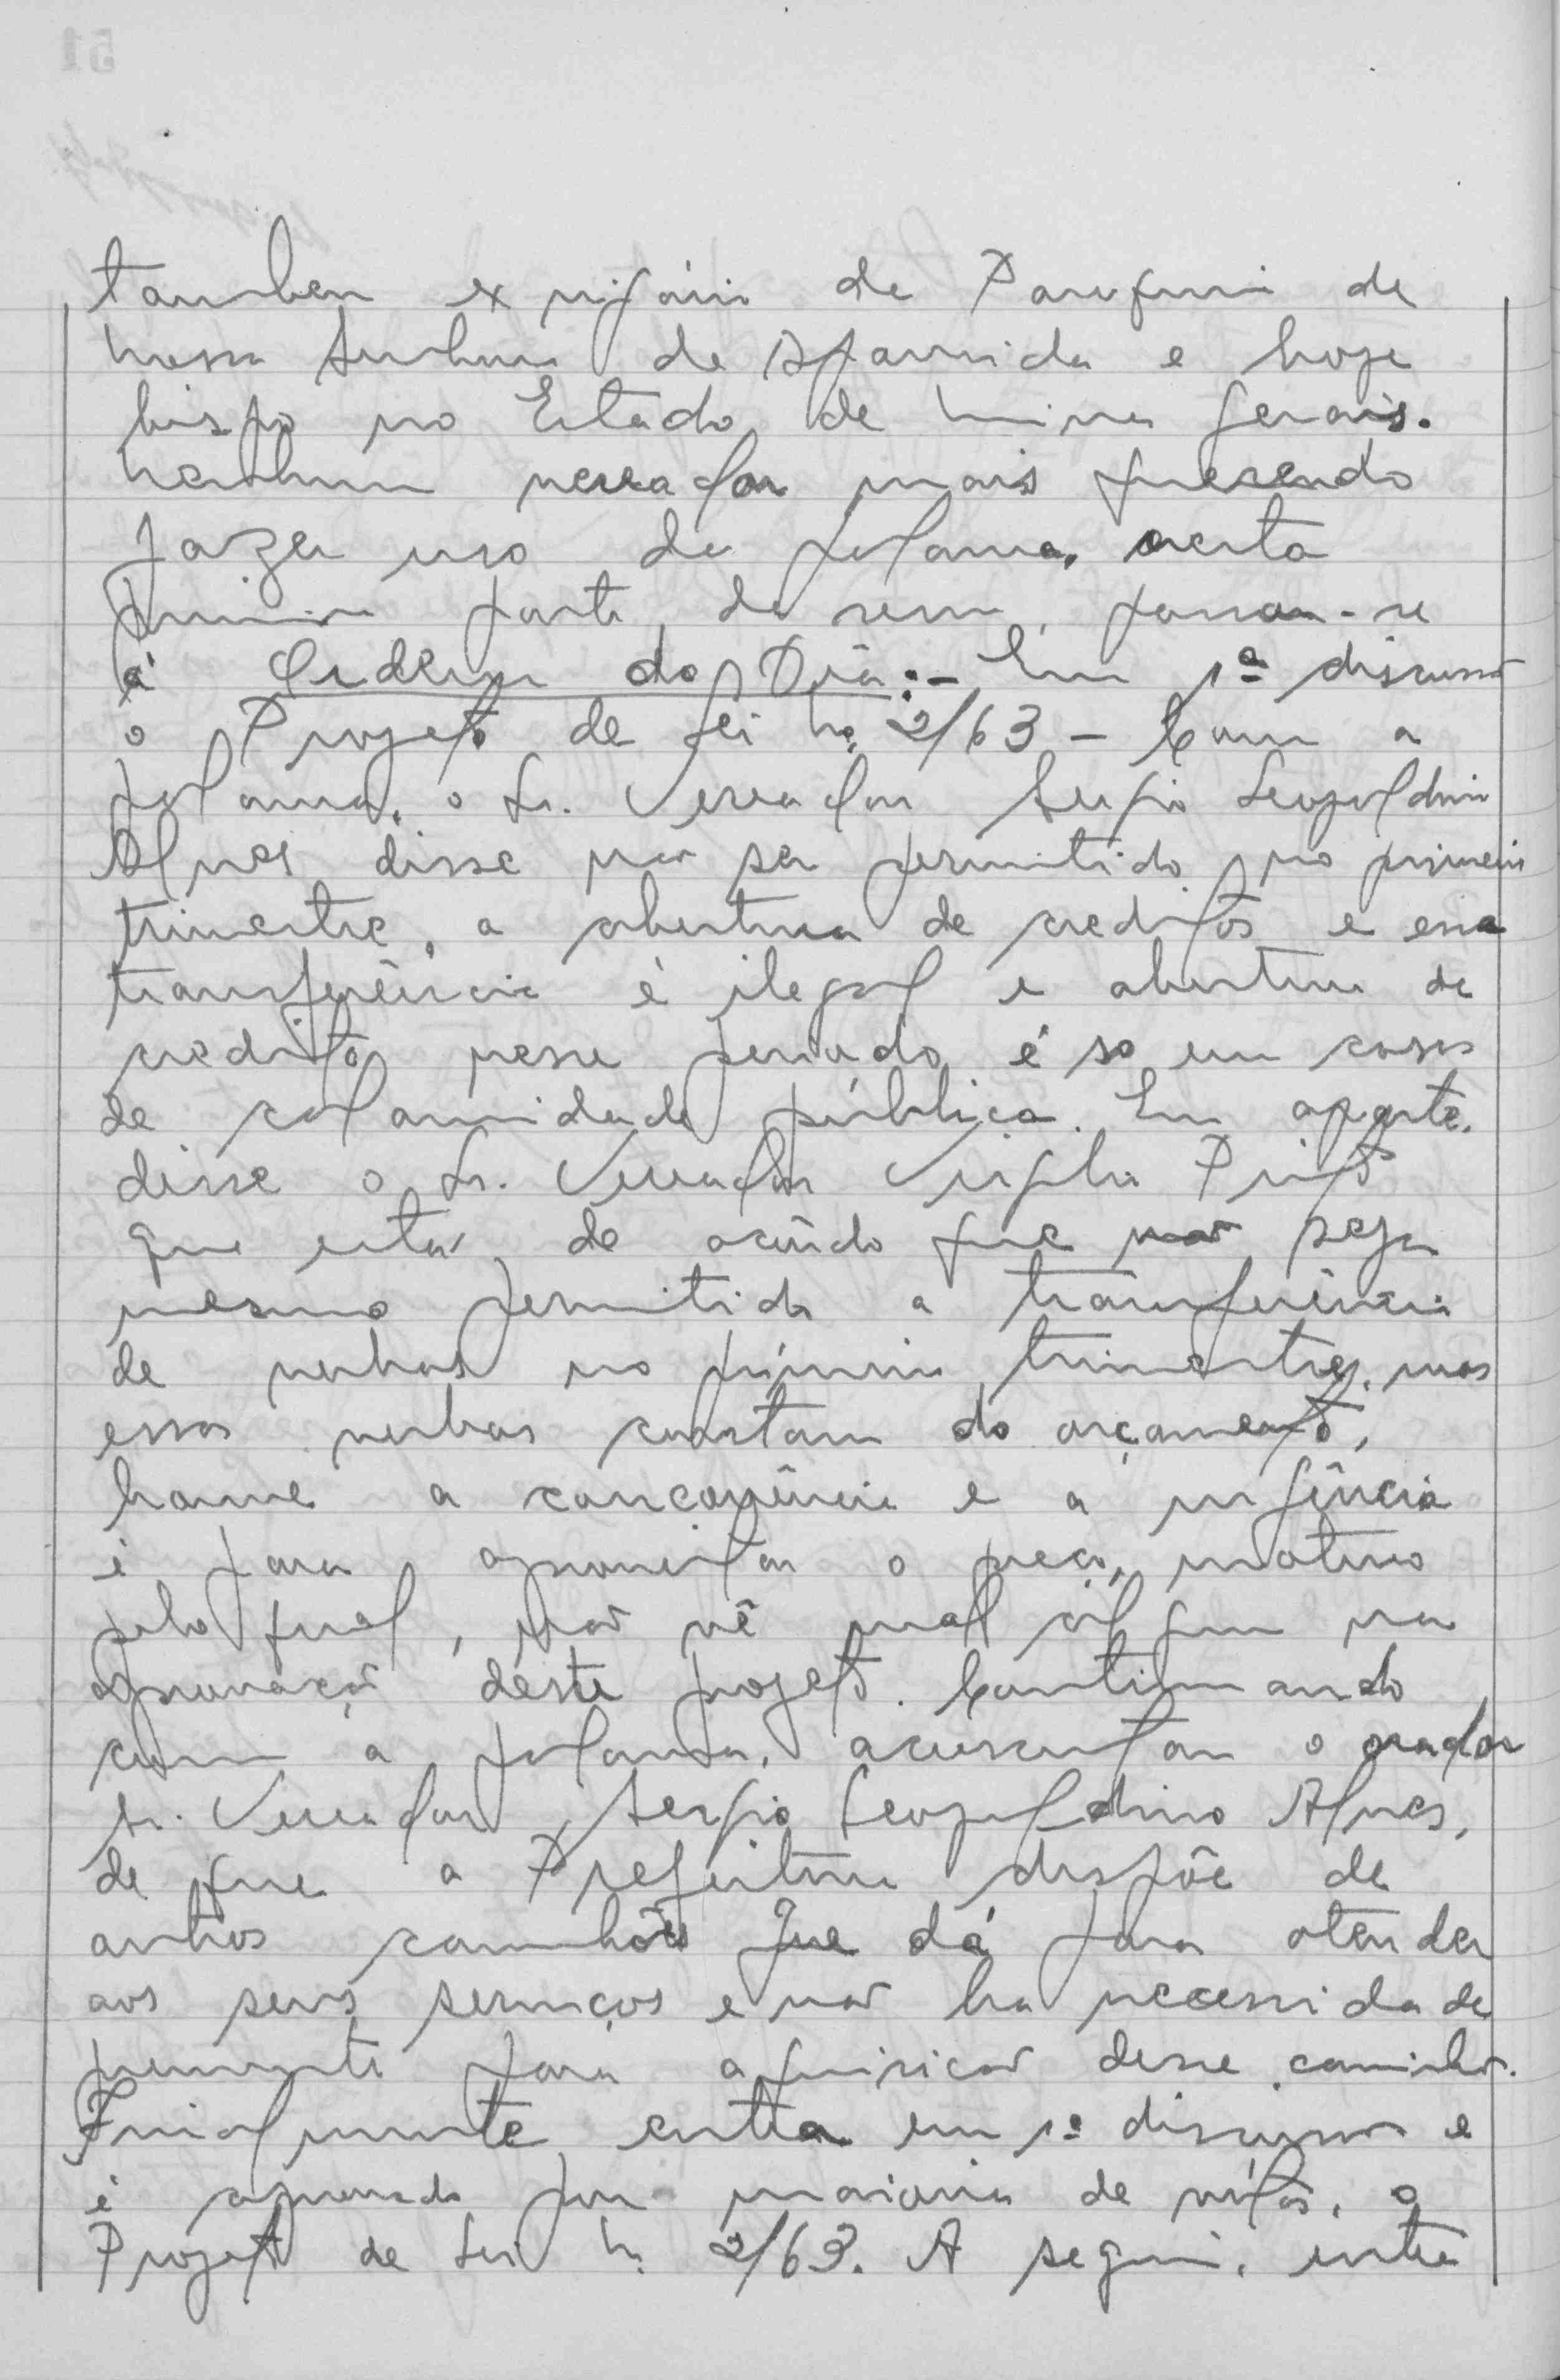 tambem ex vigário de Paroquia de
Nossa Senhora de Aparecida e hoje
bispo no Estado de Minas Gerais.
Nenhum vereador mais querendo
fazer uso da palavra, nesta
primeira parte da sessão, passou-se
á Ordem do Dia:- Em 1ª discussão
o Projeto de Lei nº 2/63 - Com a
palavra, o Sr. Vereador Sergio Leopoldino
Alves disse não ser permitido, no primeiro
trimestre, a abertura de creditos e essa
transferência é ilegal e abertura de
creditos nesse periodo é so em casos
de calamidade pública. Em aparte,
disse o Sr. Vereador Virgilio Pinto
que está de acôrdo que não seja
mesmo permitida a transferência
de verbas no primeiro trimestre, mas
essas verbas constam do orçamento,
houve a concorrência e a urgência
é para aproveitar o preço, motivo
pelo qual, não vê mal algum na
aprovação deste projeto. Continuando
com a palavra, acrescentou o orador
Sr. Vereador Sergio Leopoldino Alves,
de que a Prefeitura dispõe de
outros caminhões que dá para atender
aos seus serviços e não ha necessidade
premente para aquisição desse caminhão.
Finalmente entra em 1ª discussão e
é aprovado por maioria de votos, o
Projeto de Lei n. 2/63. A seguir, entra